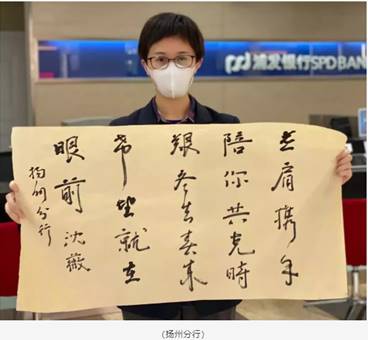 浦发银行SPD BAN
并肩携手
陪你共克時
艰冬去春来
希望就在
眼前 沈薇
扬州分行
(扬州分行)